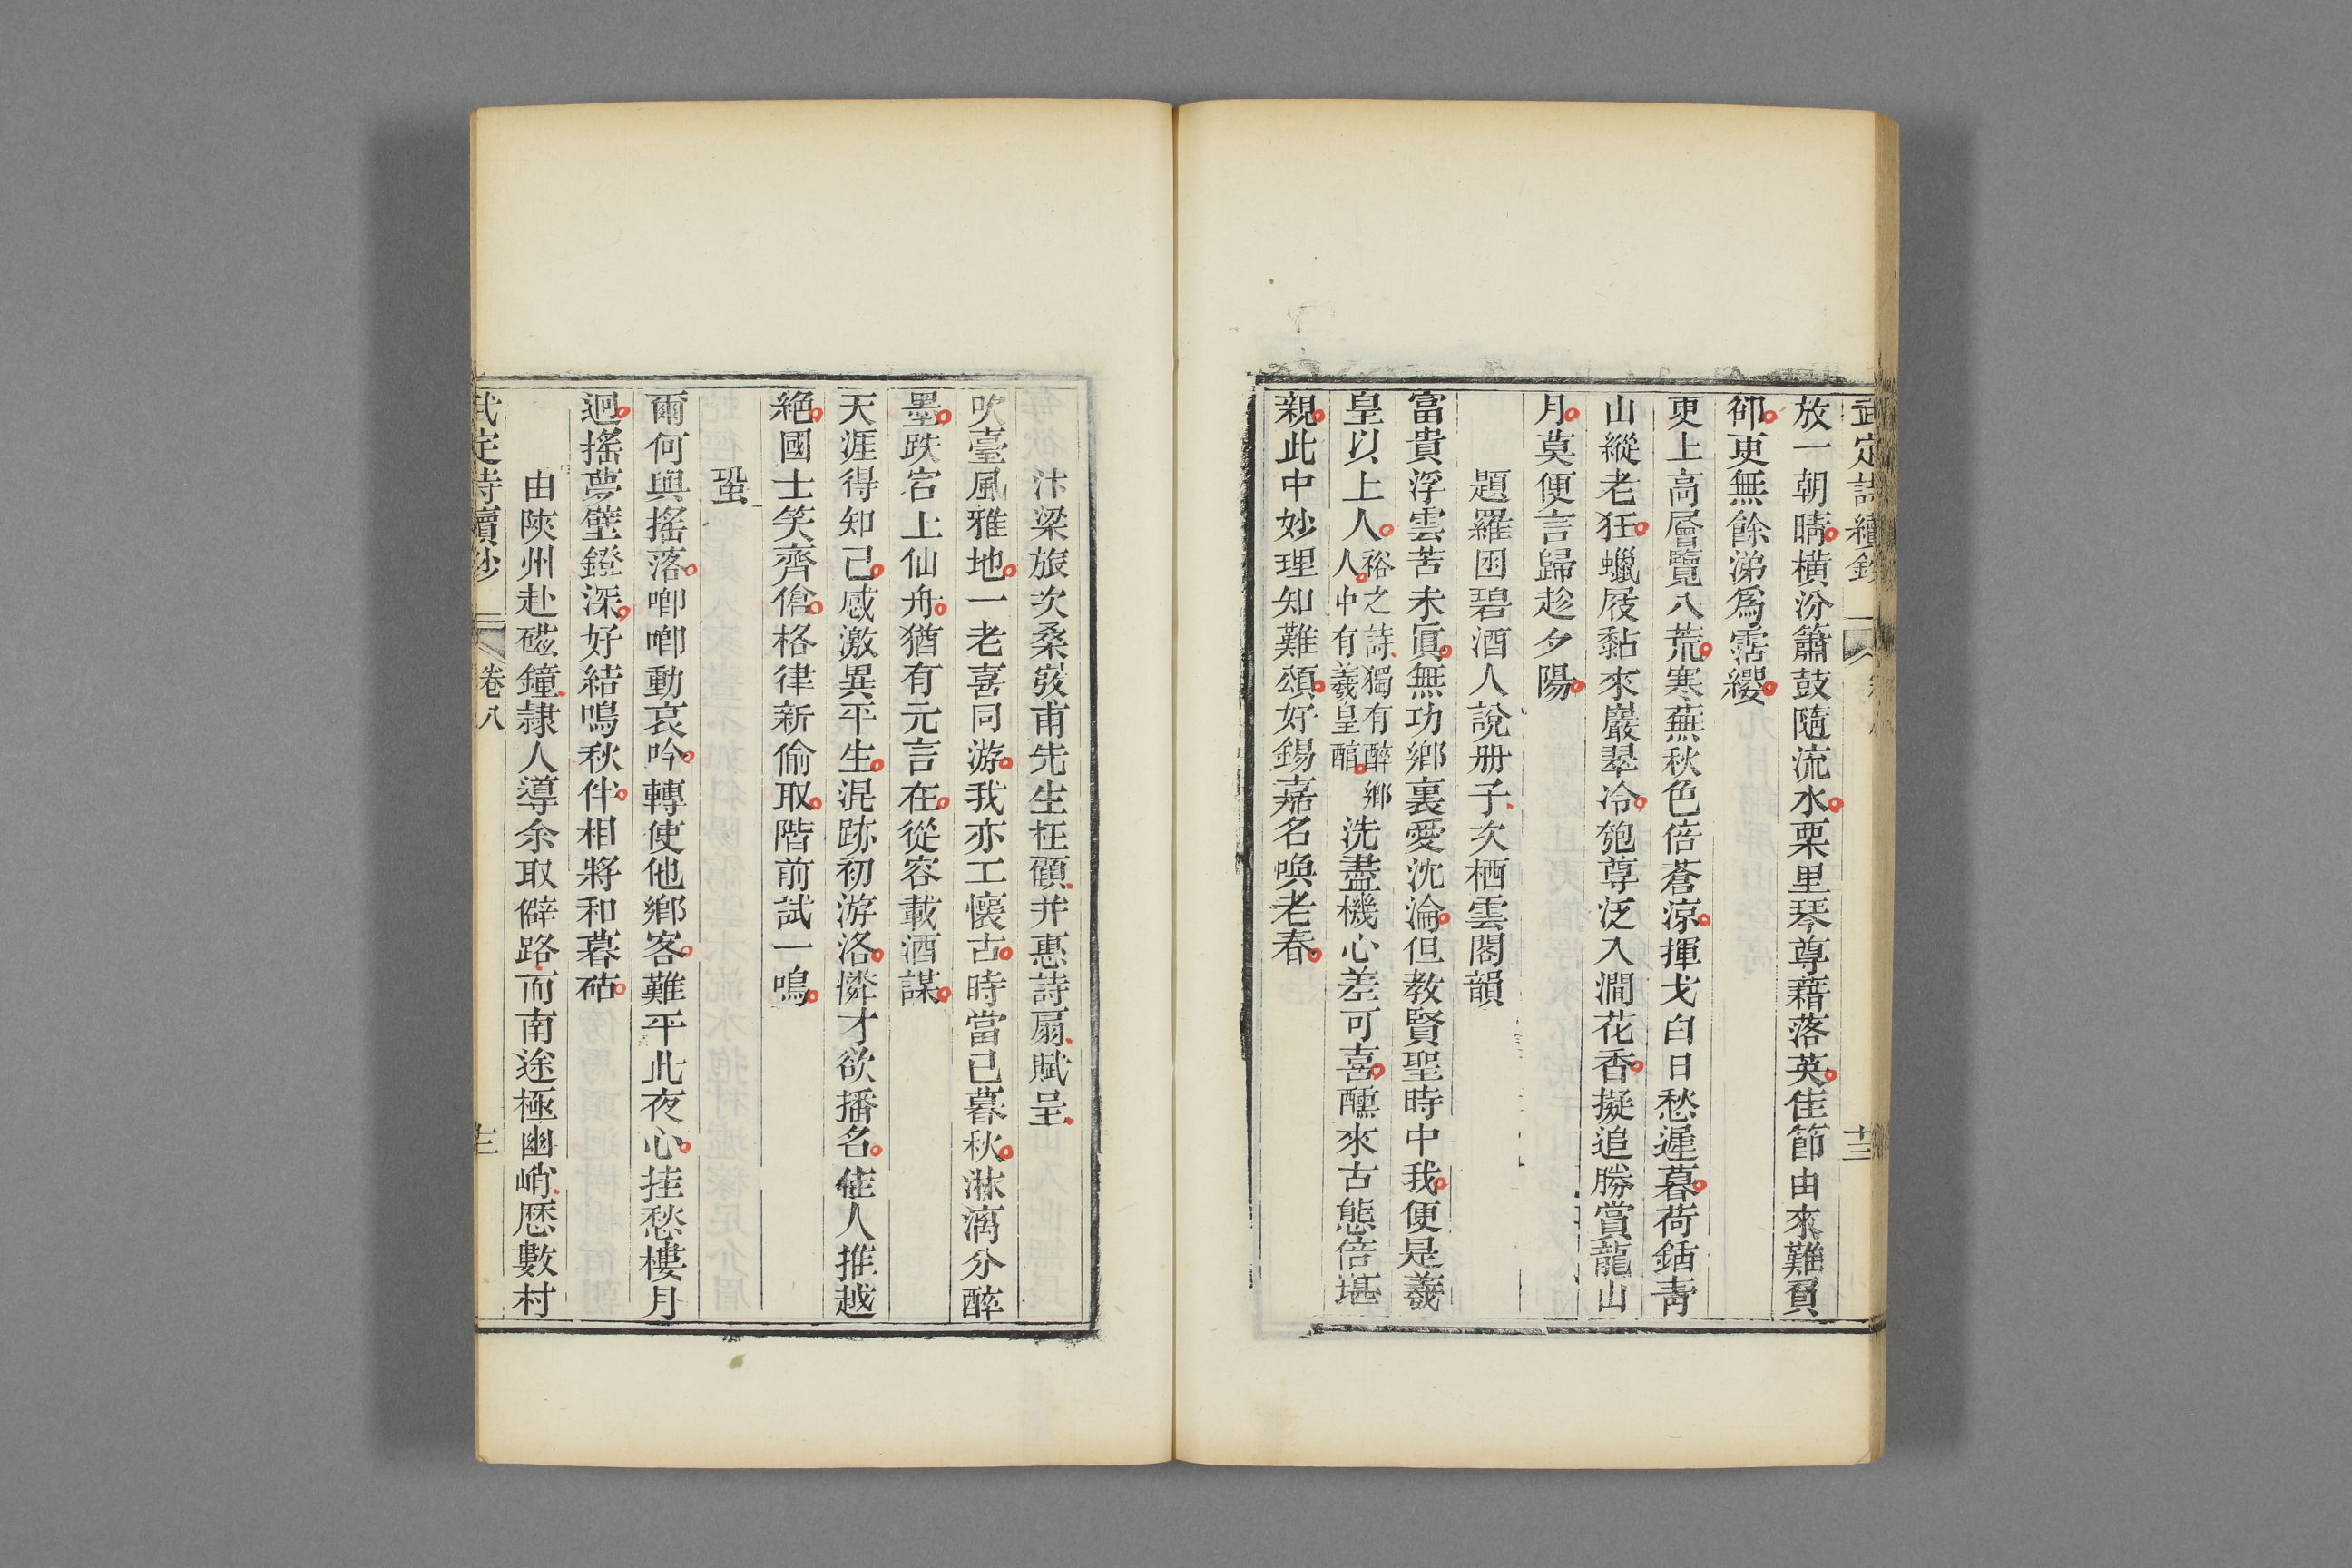 武定詩續鈔 卷八 十三
放一朝晴橫汾簫鼓隨流水栗里琴尊藉落英佳節由來難負
卻更無餘涕爲霑纓
更上高層覽八荒寒蕪秋色倍蒼涼揮戈白日愁遲暮荷鍤靑
山縱老狂蠟屐黏來巖翠冷匏尊泛入澗花香擬追勝賞龍山
月莫便言歸趁夕陽
題羅囦碧酒人說册子次栖雲閣韻
富貴浮雲苦未眞無功鄉裏愛沈淪但教賢聖時中我便是羲
皇以上人裕之詩獨有醉鄉人中有羲皇醅洗盡機心差可喜醺來古態倍堪
親此中妙理知難頌好錫嘉名喚老春
汴梁旅次桑弢甫先生枉顧并惠詩扇賦呈
吹臺風雅地一老喜同游我亦工懷古時當已暮秋淋漓分醉
墨跌宕上仙舟猶有元言在從容載酒謀
天涯得知己感激異平生混跡初游洛憐才欲播名佳人推越
絕國士笑齊傖格律新偷取階前試一鳴
蛩
爾何與搖落唧唧動哀吟轉使他鄉客難平此夜心挂愁樓月
迥搖夢壁鐙深好結鳴秋伴相將和暮砧
由陝州赴磁鐘隷人導余取僻路而南途極幽峭歷數村
武定詩續鈔 卷八 十三